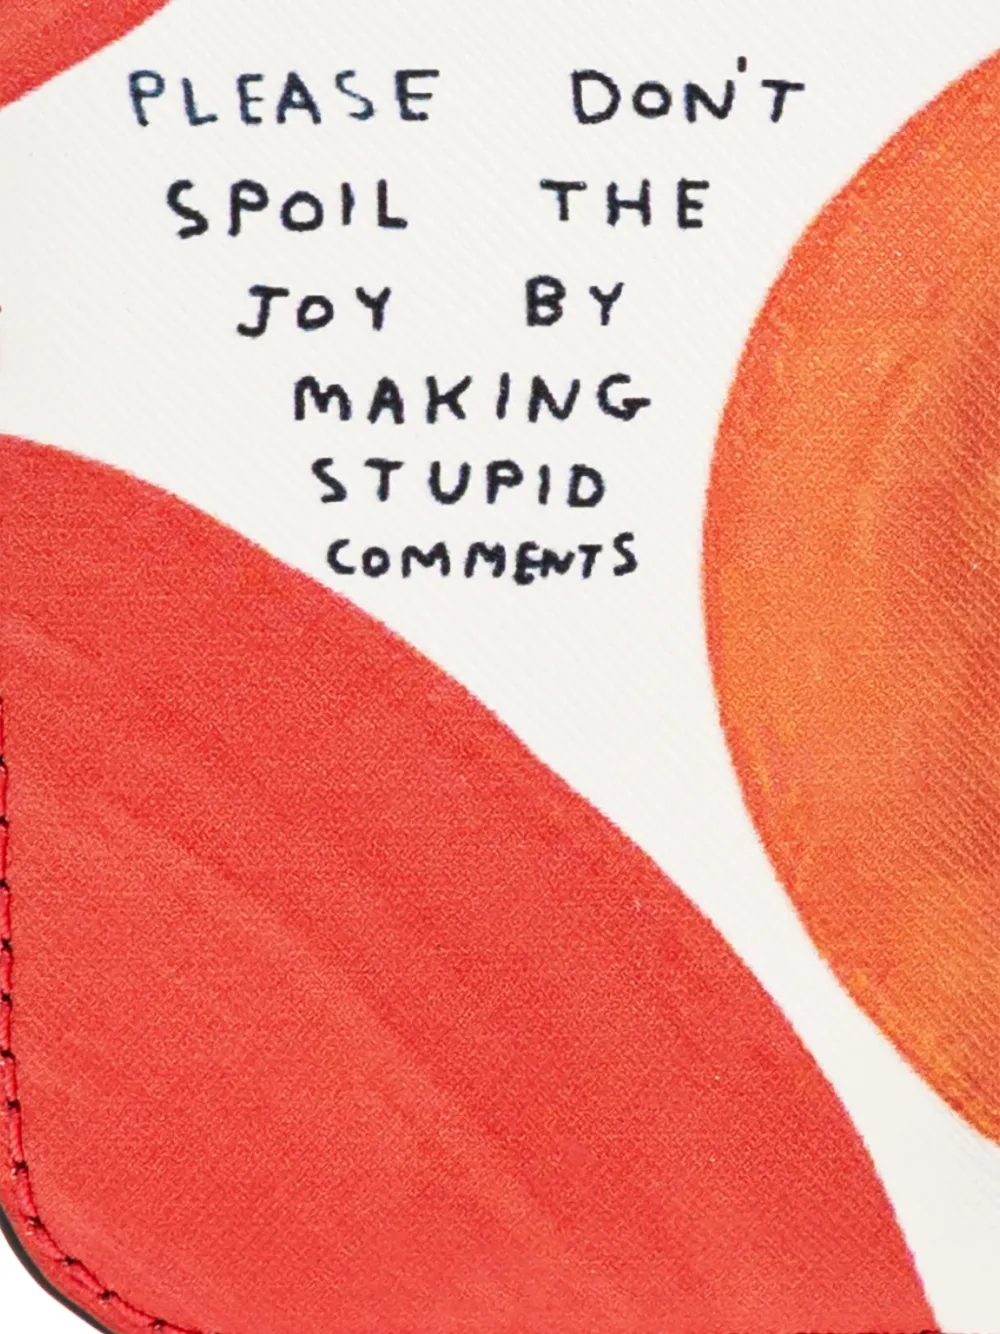 PLEASE DON'T
SPOIL THE
JOY BY
MAKING
STUPID
COMMENTS